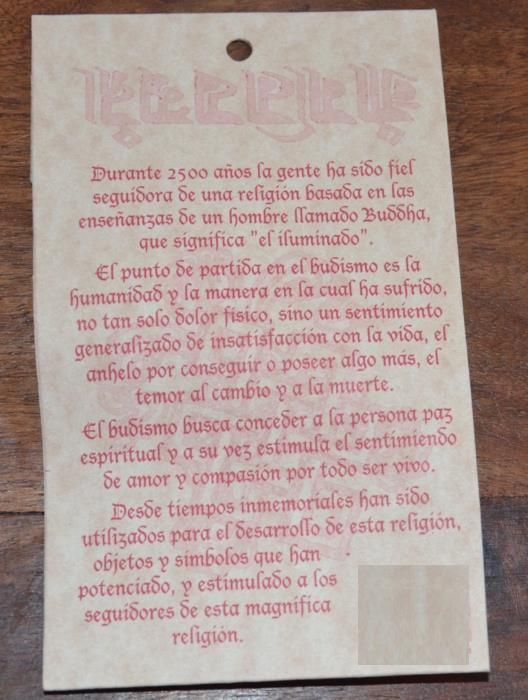 Durante 2500 años la gente ha sido fiel
seguidora de una religión basada en las
enseñanzas de un hombre llamado Buddha,
que significa "el iluminado".
El punto de partida en el budismo es la
humanidad y la manera en la cual ha sufrido,
no tan solo dolor físico, sino un sentimiento
generalizado de insatisfacción con la vida, el
anhelo por conseguir o poseer algo más, el
temor al cambio y a la muerte.
El budismo busca conceder a la persona paz
espiritual y a su vez estimula el sentimiendo
de amor y compasión por todo ser vivo.
Desde tiempos inmemoriales han sido
utilizados para el desarrollo de esta religión,
objetos y simbolos que han
potenciado, y estimulado a los
seguidores de esta magnifica
religión.